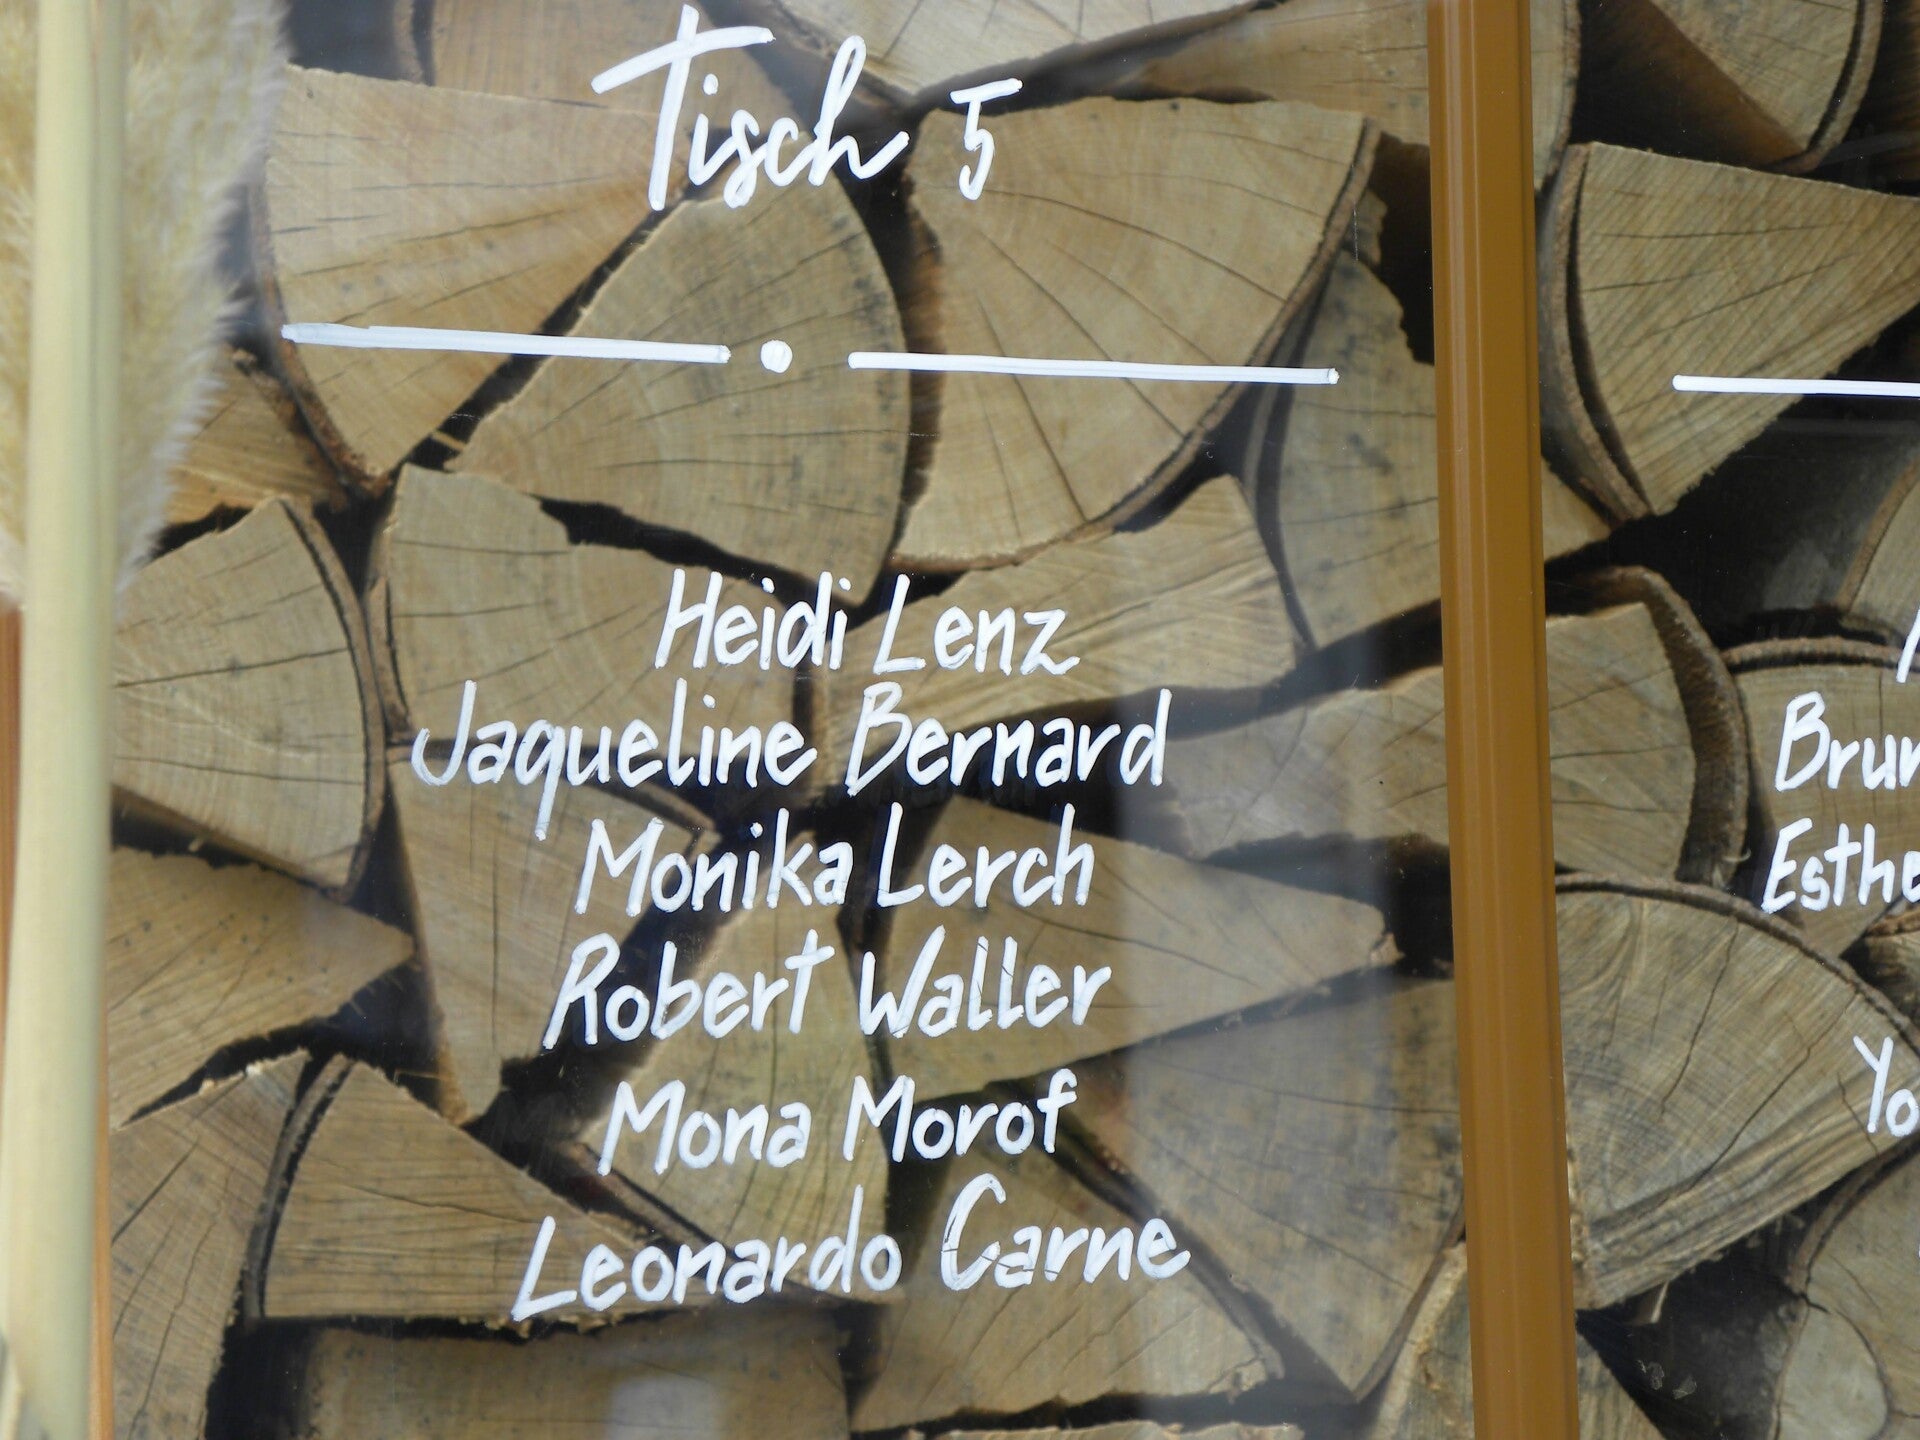 Tisch 5
Heidi Lenz
Jaqueline Bernard
Monika Lerch
Robert Waller
Mona Morof
Leonardo Carne